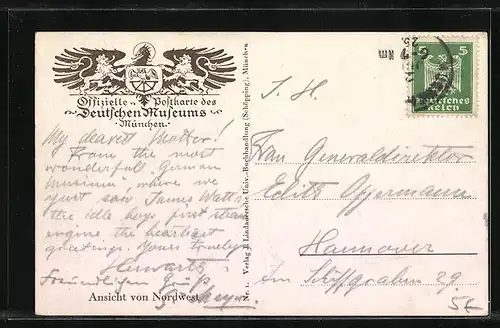 Offizielle Postkarte des
Deutschen Museums
München.
My dearest Mother!
From the most
wonderfull "German
Museum", where we
just saw James Watt's
the idle boys first steam
engine the heartiest
greetings. Yours
Freundlichen Gruß
Ansicht von Nordwest
Nr. 1. Verlag d. Lindauersche Univ.-Buchhandlung (Schöpping), München
5
Deutsches
Reich
I. H.
Frau Generaldirektor
Edith Oppermann
Hannover
Am Schiffgraben 29.
5€